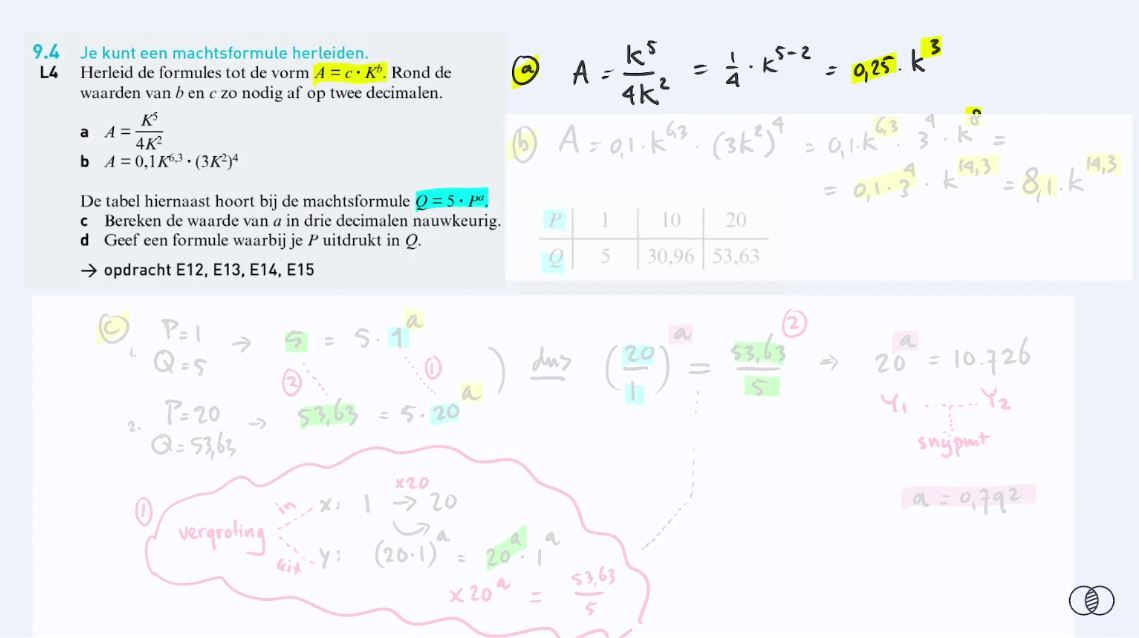 9.4 Je kunt een machtsformule herleiden.
L4 Herleid de formules tot de vorm A = c · Kᵇ. Rond de
waarden van b en c zo nodig af op twee decimalen.
a A = K⁵/4K²
b A = 0,1K⁶,³ · (3K²)⁴
De tabel hiernaast hoort bij de machtsformule Q = 5 · Pᵃ.
c Bereken de waarde van a in drie decimalen nauwkeurig.
d Geef een formule waarbij je P uitdrukt in Q.
→ opdracht E12, E13, E14, E15
a A = K⁵/4K² = 1/4 · K⁵⁻² = 0,25 · K³
b A = 0,1 · K⁶,³ · (3K²)⁴ = 0,1 · K⁶,³ · 3⁴ · K⁸ =
= 0,1 · 3⁴ · K¹⁴,³ = 8,1 · K¹⁴,³
P 1 10 20
Q 5 30,96 53,63
c 1. P=1 Q=5 → 5 = 5 · 1ᵃ
2. P=20 Q=53,63 → 53,63 = 5 · 20ᵃ
② ①
) dus (20/1)ᵃ = 53,63/5 ② ⇒ 20ᵃ = 10.726
Y₁ Y₂
snijpunt
a = 0,792
① vergroting
x20
in x: 1 → 20
uit y: (20·1)ᵃ = 20ᵃ · 1ᵃ
x20ᵃ = 53,63/5